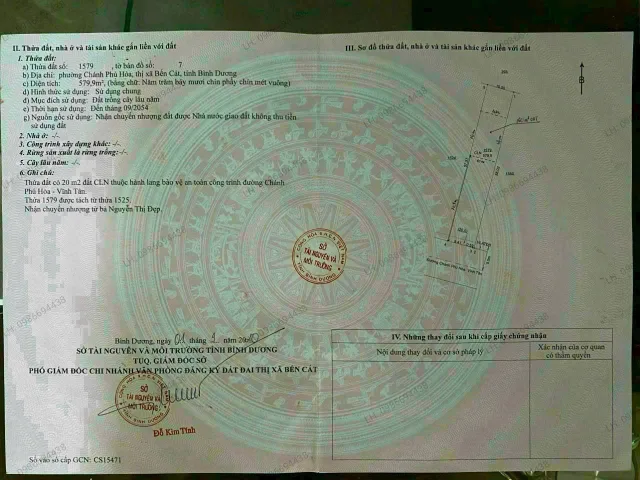 II. Thửa đất, nhà ở và tài sản khác gắn liền với đất
1. Thửa đất:
a) Thửa đất số: 1579 , tờ bản đồ số: 7
b) Địa chỉ: phường Chánh Phú Hòa, thị xã Bến Cát, tỉnh Bình Dương
c) Diện tích: 579,9m², (bằng chữ: Năm trăm bảy mươi chín phẩy chín mét vuông)
d) Hình thức sử dụng: Sử dụng chung
đ) Mục đích sử dụng: Đất trồng cây lâu năm
e) Thời hạn sử dụng: Đến tháng 09/2054
g) Nguồn gốc sử dụng: Nhận chuyển nhượng đất được Nhà nước giao đất không thu tiền
sử dụng đất
2. Nhà ở: -/-
3. Công trình xây dựng khác: -/-
4. Rừng sản xuất là rừng trồng: -/-
5. Cây lâu năm: -/-
6. Ghi chú:
Thửa đất có 20 m2 đất CLN thuộc hành lang bảo vệ an toàn công trình đường Chánh
Phú Hòa - Vĩnh Tân.
Thửa 1579 được tách từ thửa 1525.
Nhận chuyển nhượng từ bà Nguyễn Thị Đẹp.
Bình Dương, ngày 01 tháng 2 năm
SỞ TÀI NGUYÊN VÀ MÔI TRƯỜNG TỈNH BÌNH DƯƠNG
TUQ. GIÁM ĐỐC SỞ
PHÓ GIÁM ĐỐC CHI NHÁNH VĂN PHÒNG ĐĂNG KÝ ĐẤT ĐAI THỊ XÃ BẾN CÁT
SỞ
TÀI NGUYÊN
VÀ
MÔI TRƯỜNG
Đỗ Kim Tĩnh
Số vào sổ cấp GCN: CS15471
SỞ
TÀI NGUYÊN VÀ
MÔI TRƯỜNG
TỈNH BÌNH DƯƠNG
III. Sơ đồ thửa đất, nhà ở và tài sản khác gắn liền với đất
B
CLN
1579
579.9
Đường Chánh Phú Hòa - Vĩnh Tân
IV. Những thay đổi sau khi cấp giấy chứng nhận
Nội dung thay đổi và cơ sở pháp lý
Xác nhận của cơ quan
có thẩm quyền